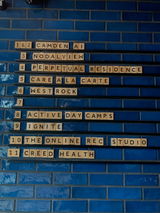 1&2 CAMDEN AI
3 NODALVIEW
4 PERPETUAL RESIDENCE
5 CARE A LA CARTE
6 WESTROCK
7
8 ACTIVE DAY CAMPS
9 IGNITE
10 THE ONLINE REC STUDIO
11 CREED HEALTH